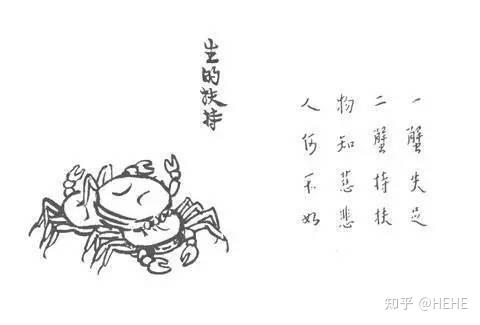 生的扶持
一蟹失足
二蟹持扶
物知慈悲
人何不如
知乎 @HEHE